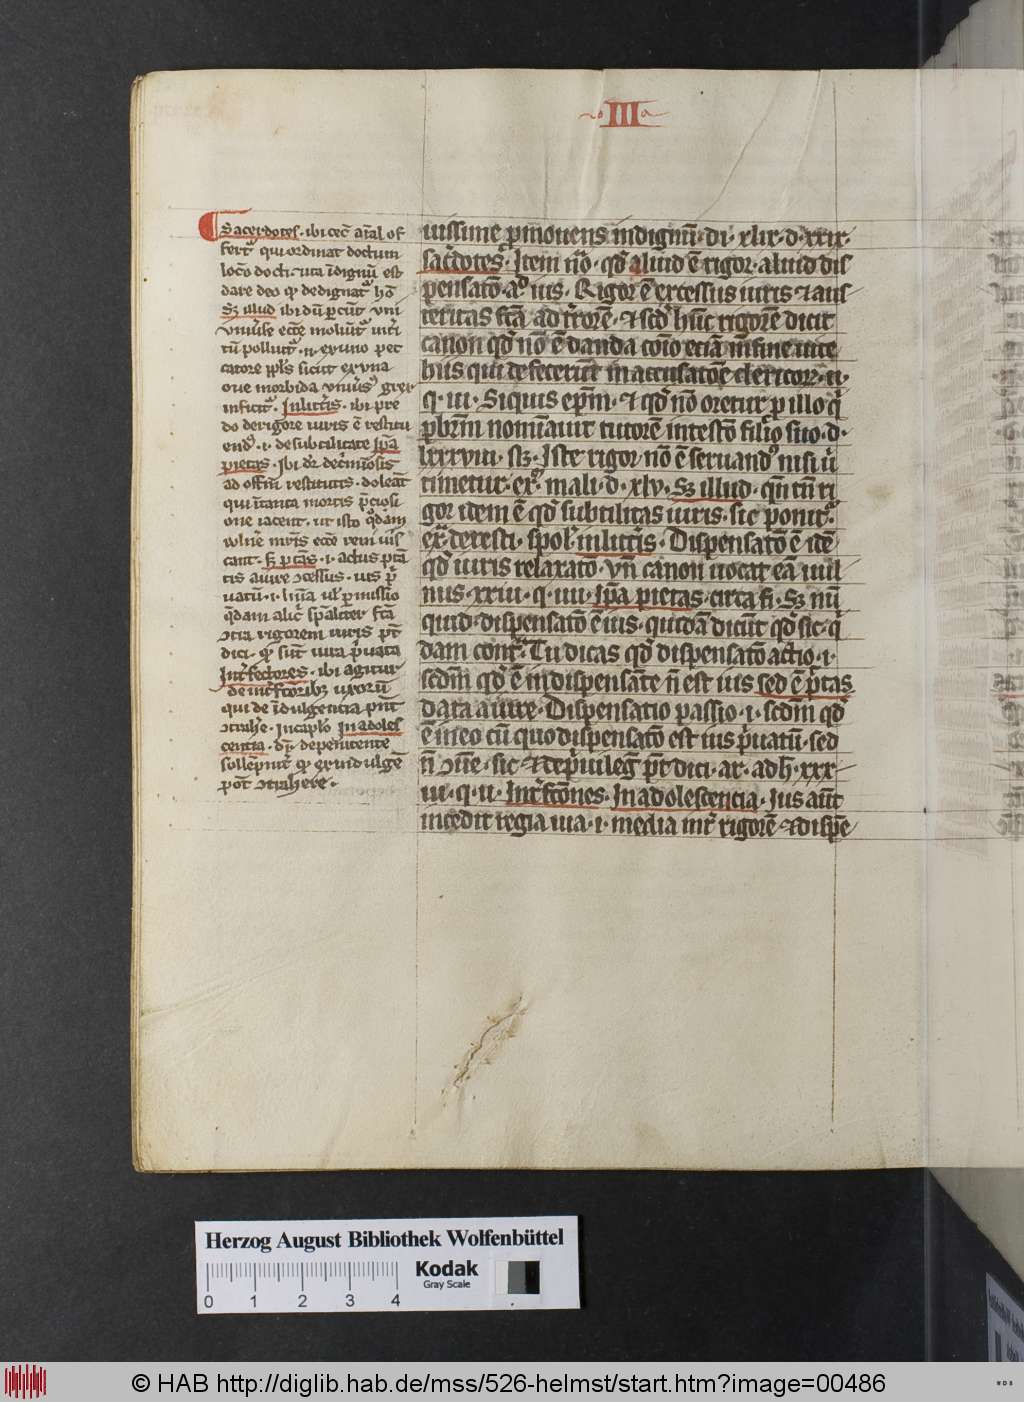 III
Sacerdotes · ibi cec̄ aīal of
fert᷒ qui ordinat doctum
loc̄o docti · ita īdignū est
dare deo qp dedignat᷒ hō
Sꝫ illud ibi dū ꝑcūt vni
vniūse eccē moliūt᷒ int̄i
tū polluit᷒ · n · ex uno pec
catore ppl̄s sicut ex vna
oue morbida vniūs᷒ grex
inficit᷒ · In litt̄is · ibi pre
do de rigore iuris ē restitu
end᷒ · i · de subtilitate Ip̄a
pietas · Ibi dr̄ de
ad off̄m restitutis · doleāt
qui ī tanta mortis p̄ciosi
one iacent · ut isto q̄dam
uulnē mr̄is eccē reni uis
cant · s; p̄tās · i · actus p̄tā
tis a iure ↄcessus · ius p̄
uatū · i · līnīa ul̓ ꝑmissio
q̄dam alic̓ sp̄alit̄er fc̄ā
ↄtra rigorem iuris pt̄
dici · qp sūt iura p̄uata
Int̄fectores · ibi agitur
de int̄fc̄orib; uxorū
qui de īdulgentia pn̄t
ↄtrahe᷒ · in caplo In adoles
centia · dr̄ · de penitente
sollēpnit̓ qp ex indulgē
pōt ↄtrahere ·
iussime ꝑmouens indignū · di · xlix · d · xxix ·
sac̄dotes · Item nō · qd̄ aliud ē rigor · aliud dis
pensatō · a᷒ ius · Rigor ē excessus iuris ⁊ aus
teritas fc̄ā ad t̄rorē · ⁊ scd̄ hūc rigorē dicit
canon qd̄ nō ē danda cōio etiā in fine uite
hiis qui defecerūt in accusatōe clericoꝝ · ii ·
q · iii · Siquis ep̄m · ⁊ qd̄ nō oretur ꝑ illo q̄
pb̄rm nomīauit tutorē in testō filio suo · d ·
lxxxviii · sꝫ · Iste rigor nō ē seruand᷒ nisi ū
timetur · ex᷒ · mali · d · xlv · Sꝫ illud · qn̄ tn̄ ri
gor idem ē qd̄ subtilitas iuris · sic ponit᷒ ·
ex̄ de resti · spol̓ · in litt̄is · Dispensatō ē idē
qd̄ iuris relaxatō · vn̄ canon uocat eā uul
nus · xxiii · q · iiii · Ip̄a pietas · circa fi · Sꝫ nū
quid · dispensatō ē ius · quidā dicūt qd̄ sic · q̄
dam cont᷒ · Tu dicas qd̄ dispensatō actio · i ·
scdm̄ qd̄ ē in dispensante n̄ est ius sed ē p̄tas
data a iure · Dispensatio passio · i · scdm̄ qd̄
ē in eo cū quo dispensatō est ius p̄uatū · sed
n̄ ↄūe · sic ⁊ de p̄uileḡ pt̄ dici · ar · ad h̓ · xxx
iii · q · ii · Int̄fc̄ores · In adolescencia · Ius aūt
incedit regia uia · i · media int̄ rigorē ⁊ dispē
Herzog August Bibliothek Wolfenbüttel
Kodak
Gray Scale
0 1 2 3 4
© HAB http://diglib.hab.de/mss/526-helmst/start.htm?image=00486